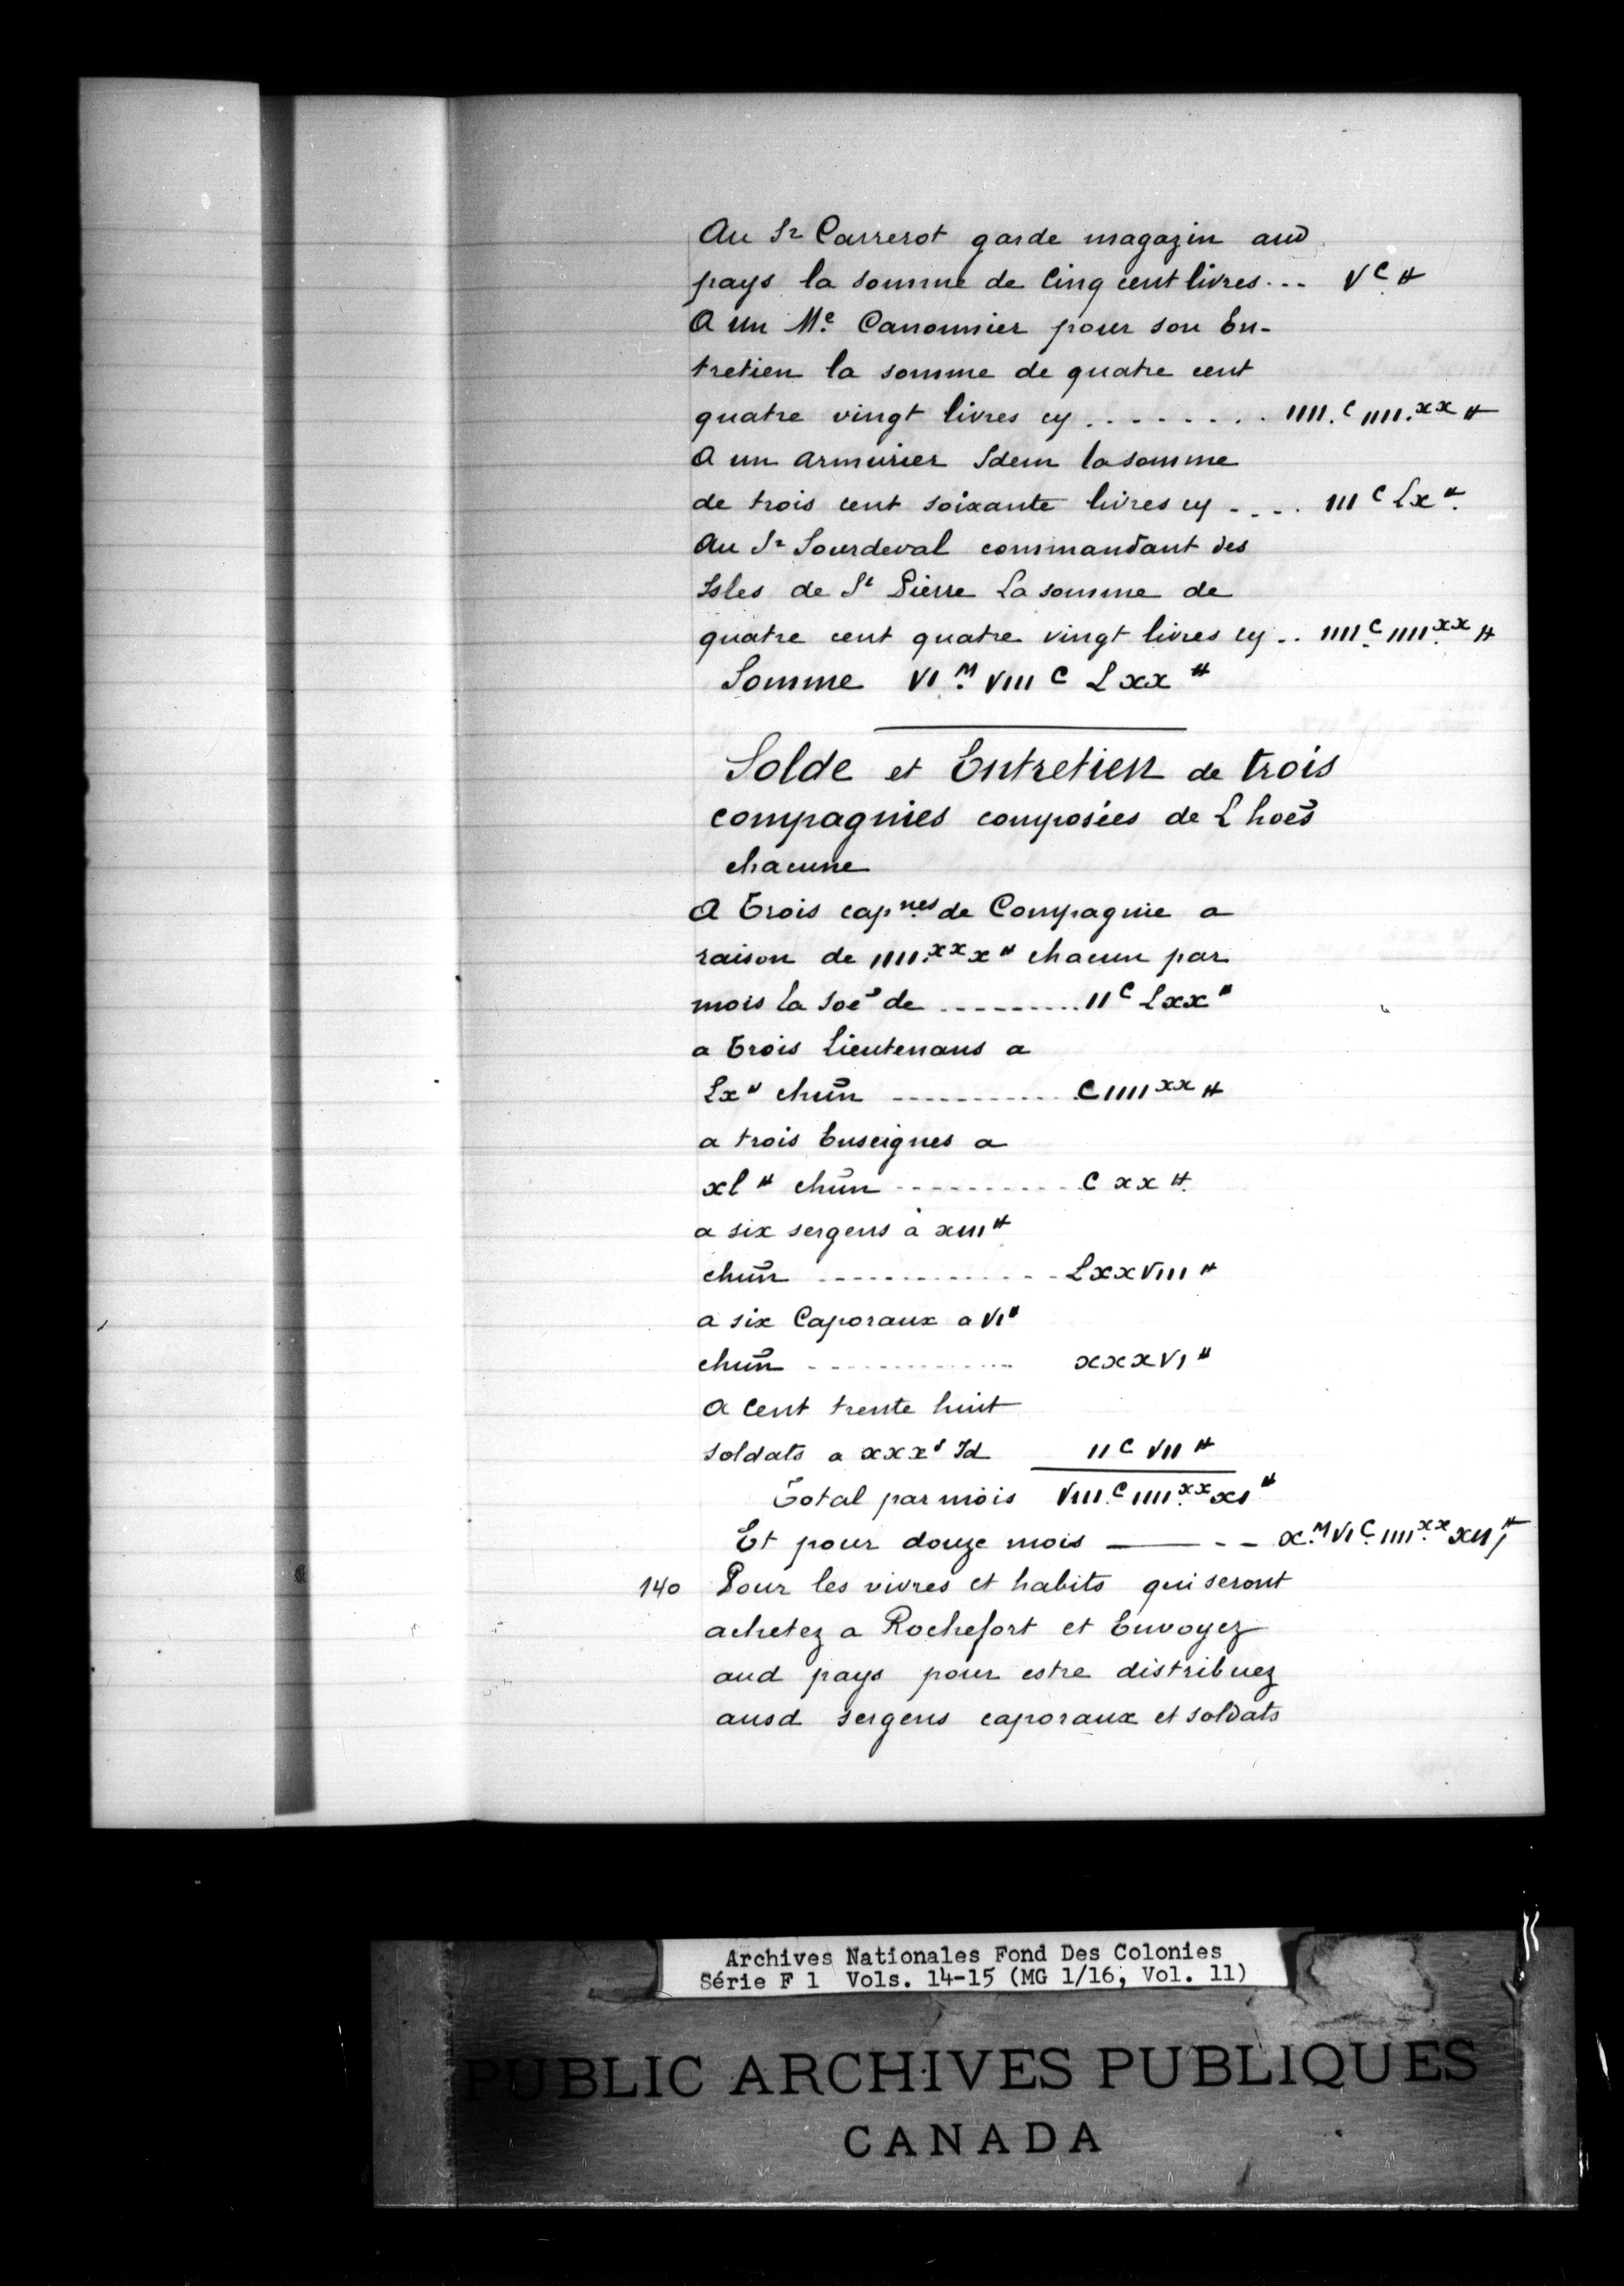 Au Sr Carrerot garde magazin aud
pays la somme de Cinq cent livres... Vc ₶
A un Me Canonnier pour son En-
tretien la somme de quatre cent
quatre vingt livres cy ........ IIII.c IIII.xx ₶
A un armurier Idem la somme
de trois cent soixante livres cy .... III c Lx ₶
Au Sr Sourdeval commandant des
Isles de St Pierre La somme de
quatre cent quatre vingt livres cy .. IIII c IIII xx ₶
Somme VI M VIII c Lxx ₶
Solde et Entretien de trois
compagnies composées de L hoēs
chacune
A Trois capnes de Compagnie a
raison de IIII.xx x ₶ chacun par
mois la soē de .......... II c Lxx ₶
a Trois Lieutenans a
Lx ₶ chūn ........... C IIII xx ₶
a trois Enseignes a
xl ₶ chūn .......... C xx ₶
a six sergens à xIII ₶
chūn .............. LxxVIII ₶
a six Caporaux a VI ₶
chūn .............. xxxVI ₶
A Cent trente huit
soldats a xxx s Id II c VII ₶
Total par mois VIII.c IIII.xx xI ₶
Et pour douze mois ——— -- x.M VI c. IIII xx xIIj ₶
140 Pour les vivres et habits qui seront
achetez a Rochefort et Envoyez
aud pays pour estre distribuez
ausd sergens caporaux et soldats
Archives Nationales Fond Des Colonies
Série F 1 Vols. 14-15 (MG 1/16, Vol. 11)
PUBLIC ARCHIVES PUBLIQUES
CANADA